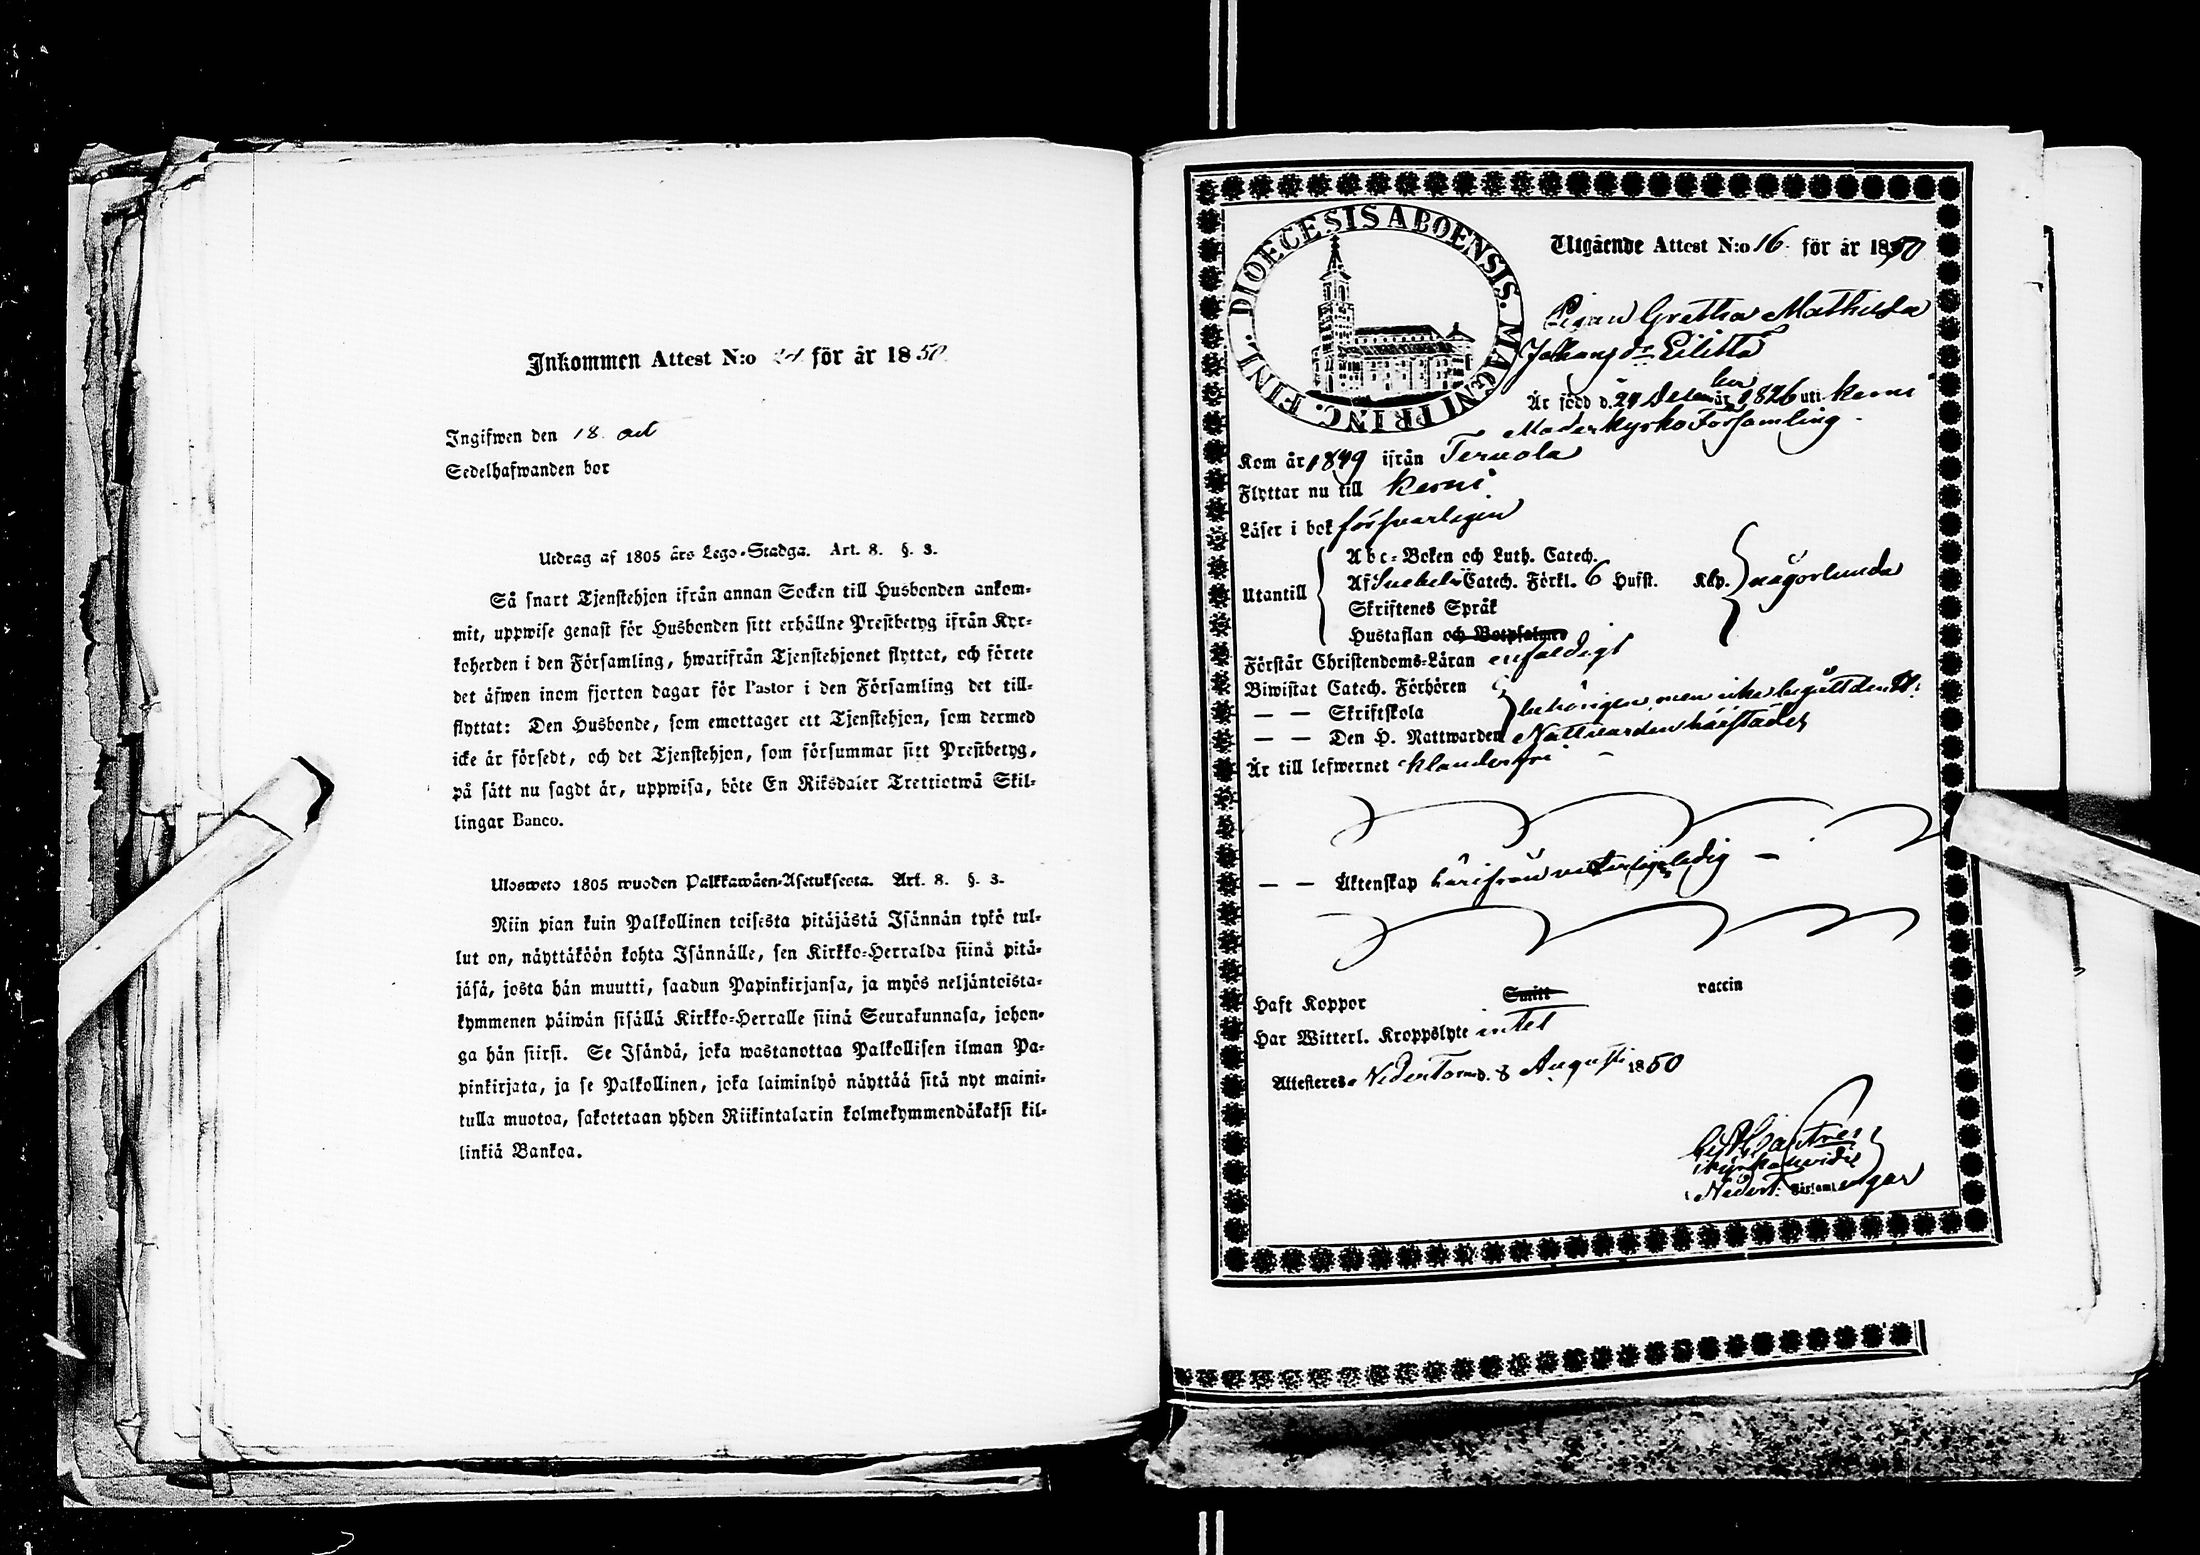 Inkommen Attest N:o för år 1850
Ingifwen den 18. oct
Sedelhafwanden bor
Utdrag af 1805 års Lego-Stadga. Art. 8. §. 3.
Så snart Tjenstehjon ifrån annan Socken till Husbonden ankom-
mit, uppwise genast för Husbonden sitt erhållne Prestbetyg ifrån Kyr-
koherden i den Församling, hwarifrån Tjenstehjonet flyttat, och förete
det äfwen inom fjorton dagar för Pastor i den Församling det till-
flyttat: Den Husbonde, som emottager ett Tjenstehjon, som dermed
icke är försedt, och det Tjenstehjon, som försummar sitt Prestbetyg,
på sätt nu sagdt är, uppwisa, böte En Riksdaler Trettiotwå Skil-
lingar Banco.
Ulosweto 1805 wuoden Palkkawäen-Asetuksesta. Art. 8. §. 3.
Niin pian kuin Palkollinen toisesta pitäjästä Isännän tykö tul-
lut on, näyttäköön kohta Isännälle, sen Kirkko-Herralda siinä pitä-
jäsä, josta hän muutti, saadun Papinkirjansa, ja myös neljäntoista-
kymmenen päiwän sisällä Kirkko-Herralle siinä Seurakunnasa, johon-
ga hän siirsi. Se Isändä, joka wastanottaa Palkollisen ilman Pa-
pinkirjata, ja se Palkollinen, joka laiminlyö näyttää sitä nyt maini-
tulla muotoa, sakotetaan yhden Riikintalarin kolmekymmendäkaksi kil-
linkiä Bankoa.
DIOECESIS ABOENSIS. MAGNI PRINC. FINL.
Utgående Attest N:o 16. för år 1850
Pigan Gretha Mathilda
Johansdr Eilitta
Är född d. 29 December år 1826 uti Kemi
Moderkyrko Församling
Kom år 1849 ifrån Tervola
Flyttar nu till Kemi
Läser i bok försvarligen
Utantill
Abc-Boken och Luth. Catech.
Af Svebelii Catech. Förkl. 6 Hufst. Klp. någorlunda
Skriftenes Språk
Hustaflan och Botpsalmer
Förstår Christendoms-Läran enfaldigt
Biwistat Catech. Förhören
— — Skriftskola behörigen, men icke begått den H:
— — Den H. Nattwarden Nattvarden härstädes
Är till lefwernet klanderfri
— — Äktenskap härifrån veterligen ledig —
Haft Koppor Smitt vaccin
Har Witterl. Kroppslyte intet
Attesteres Neder Torneå d. 8 Augusti 1850
Nedert. Församlingar